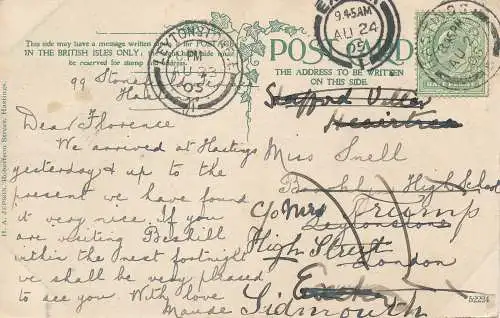 This side may have a message written upon it for POSTAGE
IN THE BRITISH ISLES ONLY;
be reserved for stamp and address
POST CARD
THE ADDRESS TO BE WRITTEN
ON THIS SIDE.
EX
9.45AM
AU 24
05
LEYTONSTONE
PM
AU 23
05
HASTINGS
AU
HALFPENNY
99 Stone
Dear Florence
We arrived at Hastings
yesterday & up to the
present we have found
it very nice. If you
are visiting Bexhill
within the next fortnight
we shall be very pleased
to see you. With love
Maude
Stafford Villas
Heavitree
Miss Snell
High School
c/o Mrs Bicomp
Leytonstone
High Street
London
Exeter
Sidmouth
H. A. JEPSON, Robertson Street, Hastings.
52224